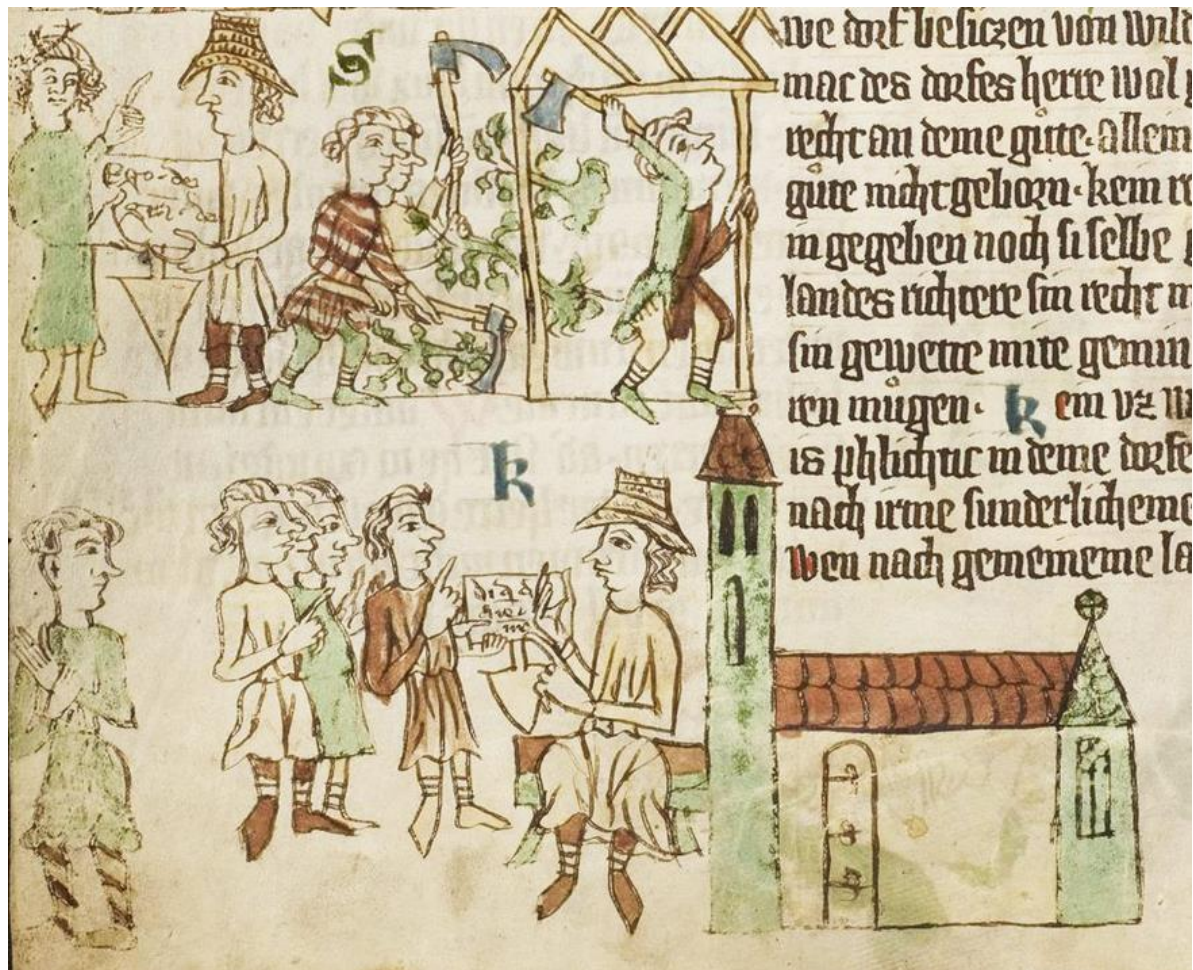 S
we dorf besiczen von wild
mac des dorfes herre wol g
recht an deme gůte· allein
gůte nicht geborn· kein re
in gegeben noch si selbe g
landes richtere sin recht m
sin gewette mite gemin
ren můgen· k ein vz w
is phlichtic in deme dorfe
nach irme sunderlicheme
wen nach gememeine la
k
Ego de